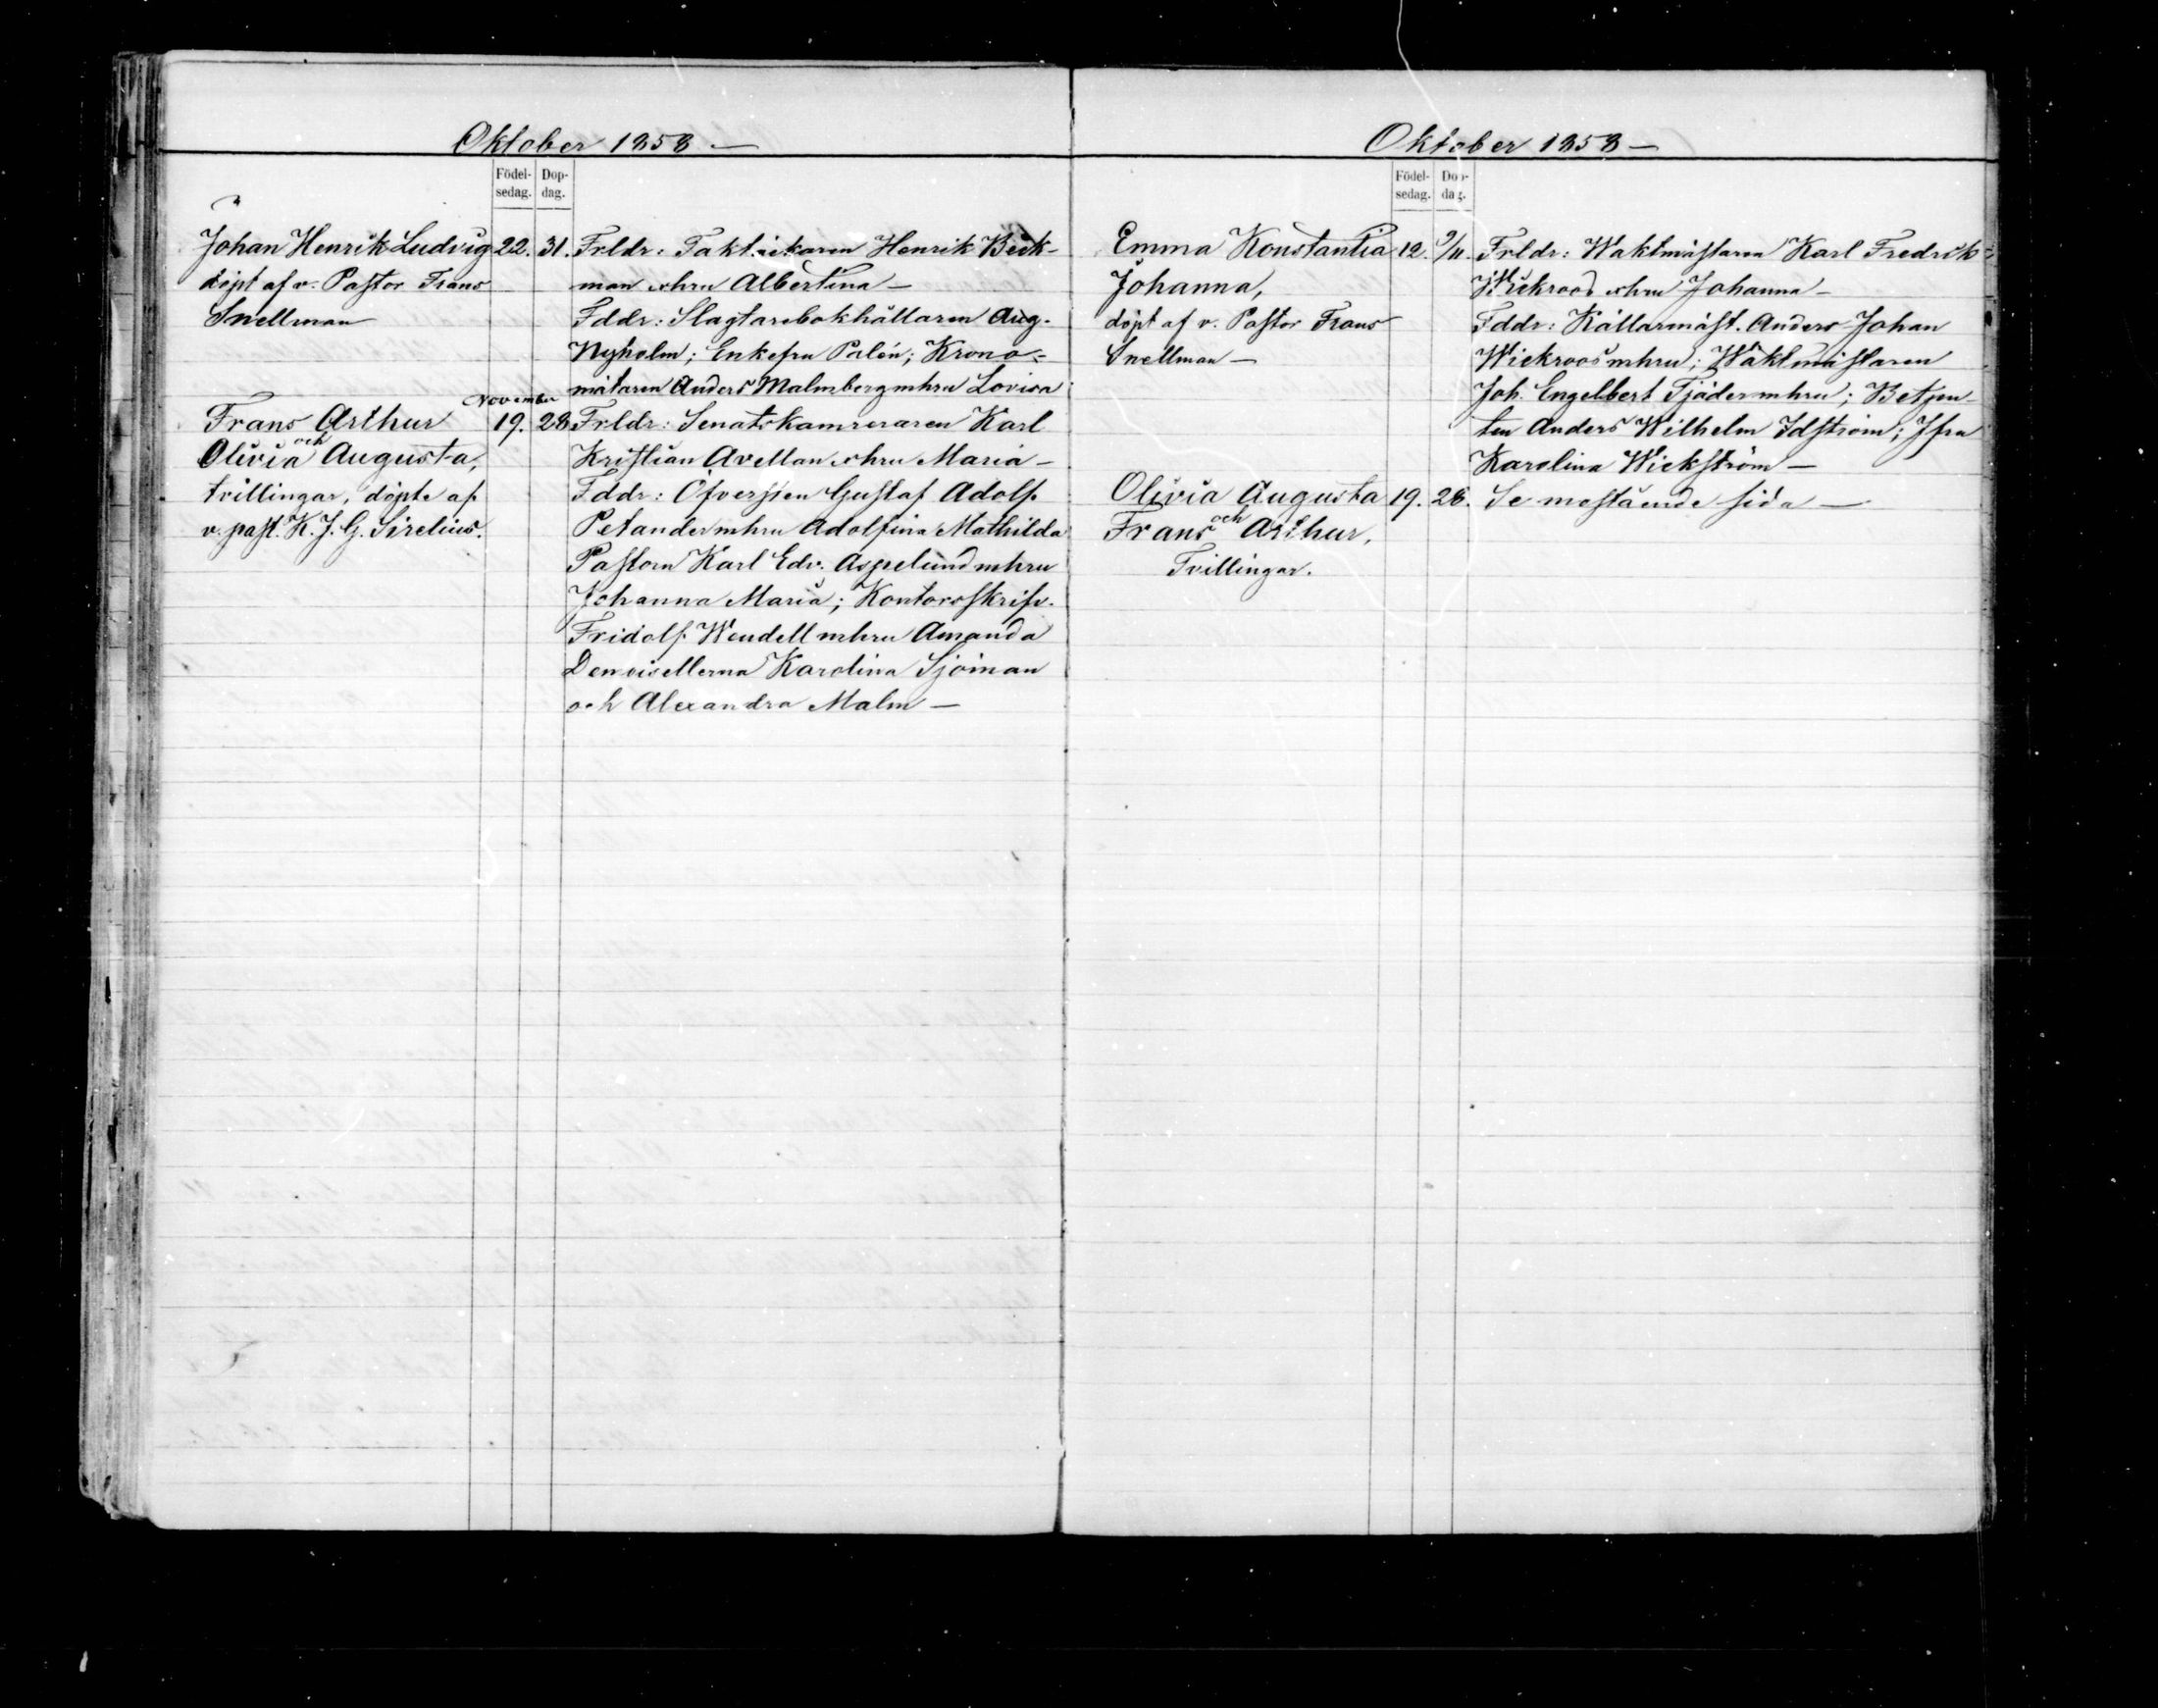 Oktober 1858 —
Födel- Dop-
sedag. dag.
Johan Henrik Ludvig 22. 31. Frldr: Taktäckaren Henrik Beck-
döpt af v. Pastor Frans man o hru Albertina —
Snellman Fddr: Slagtarebokhållaren Aug.
Nyholm; Enkefru Palén; Krono-
mätaren Anders Malmberg mhru Lovisa
November
Frans Arthur 19. 28 Frldr: Senatskamreraren Karl
och
Olivia Augusta, Kristian Avellan o hru Maria —
tvillingar, döpte af Fddr: Öfversten Gustaf Adolf
v. past. K. J. G. Sirelius. Petander mhru Adolfina Mathilda
Pastorn Karl Edv. Aspelund mhru
Johanna Maria; Kontorsskrifv.
Fridolf Wendell mhru Amanda
Demoisellerna Karolina Sjöman
och Alexandra Malm —
Oktober 1858 —
Födel- Dop-
sedag. dag.
Emma Konstantia 12. 9/11. Frldr: Waktmästaren Karl Fredrik
Johanna, Wickroos o hru Johanna —
döpt af v. Pastor Frans Fddr: Källarmäst. Anders Johan
Snellman — Wickroos mhru; Waktmästaren
Joh. Engelbert Tjäder mhru; Betjen-
ten Anders Wilhelm Idström; Jfru
Karolina Wickström —
Olivia Augusta 19. 28. Se mostående sida —
och
Frans Arthur,
Tvillingar.